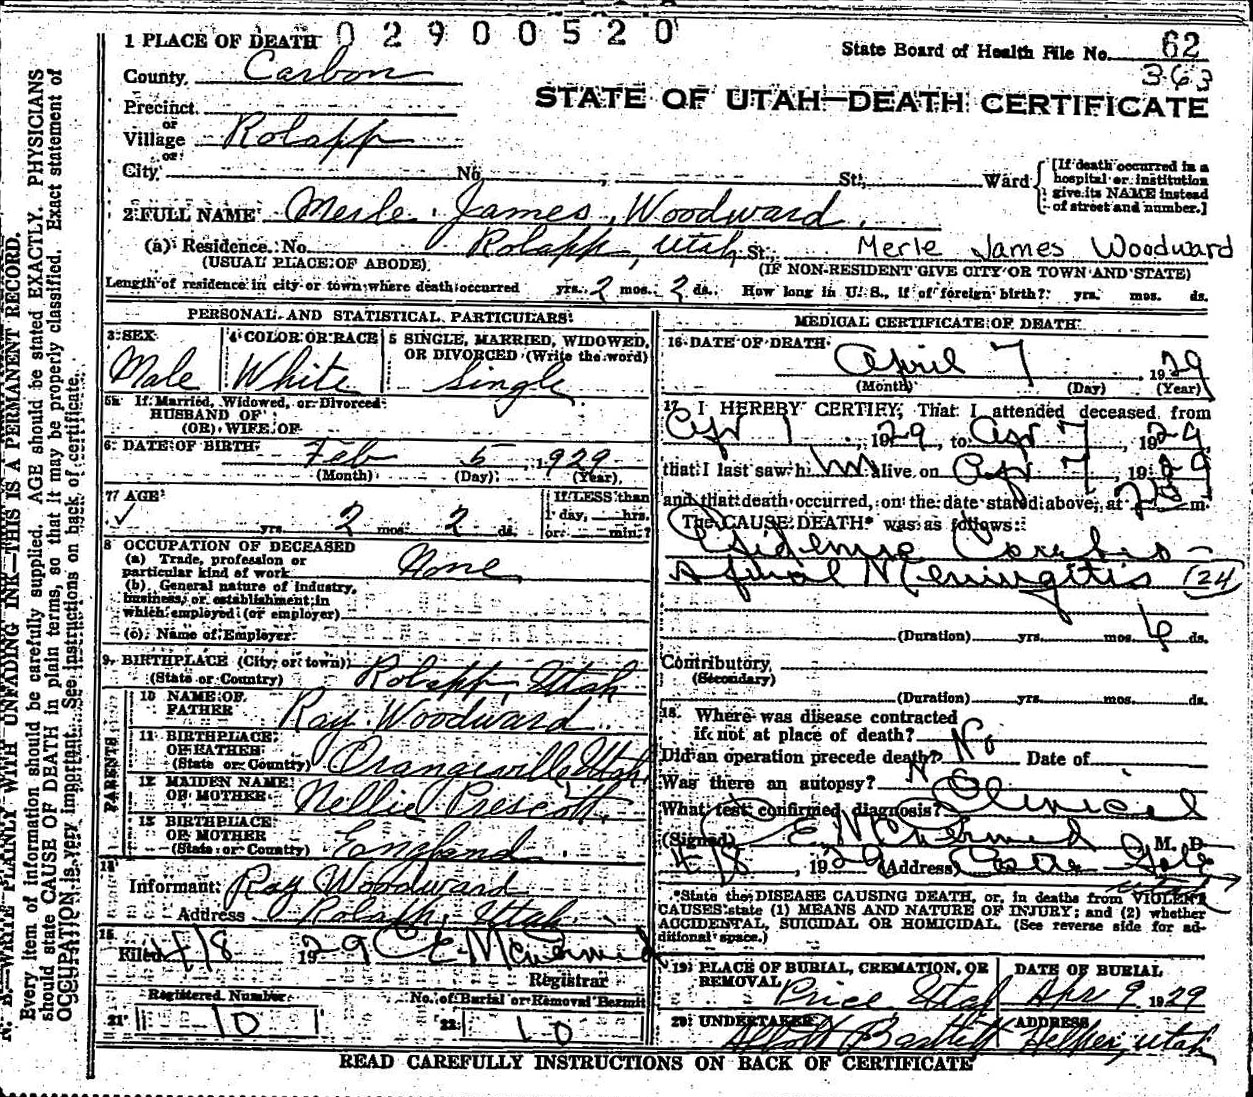 0 2 9 0 0 5 2 0
1 PLACE OF DEATH
State Board of Health File No. 62
363
County Carbon
STATE OF UTAH—DEATH CERTIFICATE
Precinct
or
Village Rolapp
or
City No. St., Ward
[If death occurred in a
hospital or institution
give its NAME instead
of street and number.]
2 FULL NAME Merle James Woodward
(a) Residence. No. Rolapp, Utah St., Merle James Woodward
(USUAL PLACE OF ABODE) (IF NON-RESIDENT GIVE CITY OR TOWN AND STATE)
Length of residence in city or town where death occurred yrs. 2 mos. 2 ds. How long in U. S., if of foreign birth? yrs. mos. ds.
PERSONAL AND STATISTICAL PARTICULARS
3 SEX 4 COLOR OR RACE 5 SINGLE, MARRIED, WIDOWED, OR DIVORCED (Write the word)
Male White Single
5a If Married, Widowed, or Divorced
HUSBAND OF
(OR) WIFE OF
6 DATE OF BIRTH Feb 5, 1929
(Month) (Day) (Year)
7 AGE
yrs. 2 mos. 2 ds.
If LESS than
1 day, hrs.
or min.?
8 OCCUPATION OF DECEASED
(a) Trade, profession or
particular kind of work None
(b) General nature of industry,
business, or establishment in
which employed (or employer)
(c) Name of Employer
9 BIRTHPLACE (City or town)
(State or Country) Rolapp, Utah
PARENTS
10 NAME OF
FATHER Ray Woodward
11 BIRTHPLACE
OF FATHER
(State or Country) Orangeville, Utah
12 MAIDEN NAME
OF MOTHER Nellie Prescott
13 BIRTHPLACE
OF MOTHER
(State or Country) England
14
Informant: Ray Woodward
Address Rolapp, Utah
15
Filed 4/8 1929 C E McDermid
Registrar
Registered Number No. of Burial or Removal Permit
21 10 22 10
MEDICAL CERTIFICATE OF DEATH
16 DATE OF DEATH
April 7, 1929
(Month) (Day) (Year)
17 I HEREBY CERTIFY, That I attended deceased from
Apr 1, 1929, to Apr 7, 1929
that I last saw him alive on Apr 7, 1929
and that death occurred, on the date stated above, at m.
The CAUSE DEATH* was as follows:
Epidemic Cerebro-
Spinal Meningitis (24
(Duration) yrs. mos. 6 ds.
Contributory
(Secondary)
(Duration) yrs. mos. ds.
18 Where was disease contracted
if not at place of death?
Did an operation precede death? No Date of
Was there an autopsy? No
What test confirmed diagnosis? Clinical
(Signed) C E McDermid M. D.
4/8, 1929 (Address) Castle Gate
Utah
*State the DISEASE CAUSING DEATH, or, in deaths from VIOLENT
CAUSES state (1) MEANS AND NATURE OF INJURY; and (2) whether
ACCIDENTAL, SUICIDAL OR HOMICIDAL. (See reverse side for ad-
ditional space.)
19 PLACE OF BURIAL, CREMATION, OR REMOVAL DATE OF BURIAL
Price Utah Apr 9 1929
20 UNDERTAKER ADDRESS
Bartlett Helper, Utah
READ CAREFULLY INSTRUCTIONS ON BACK OF CERTIFICATE
N. B.—WRITE PLAINLY WITH UNFADING INK—THIS IS A PERMANENT RECORD.
Every item of information should be carefully supplied. AGE should be stated EXACTLY. PHYSICIANS
should state CAUSE OF DEATH in plain terms, so that it may be properly classified. Exact statement of
OCCUPATION is very important. See instructions on back of certificate.